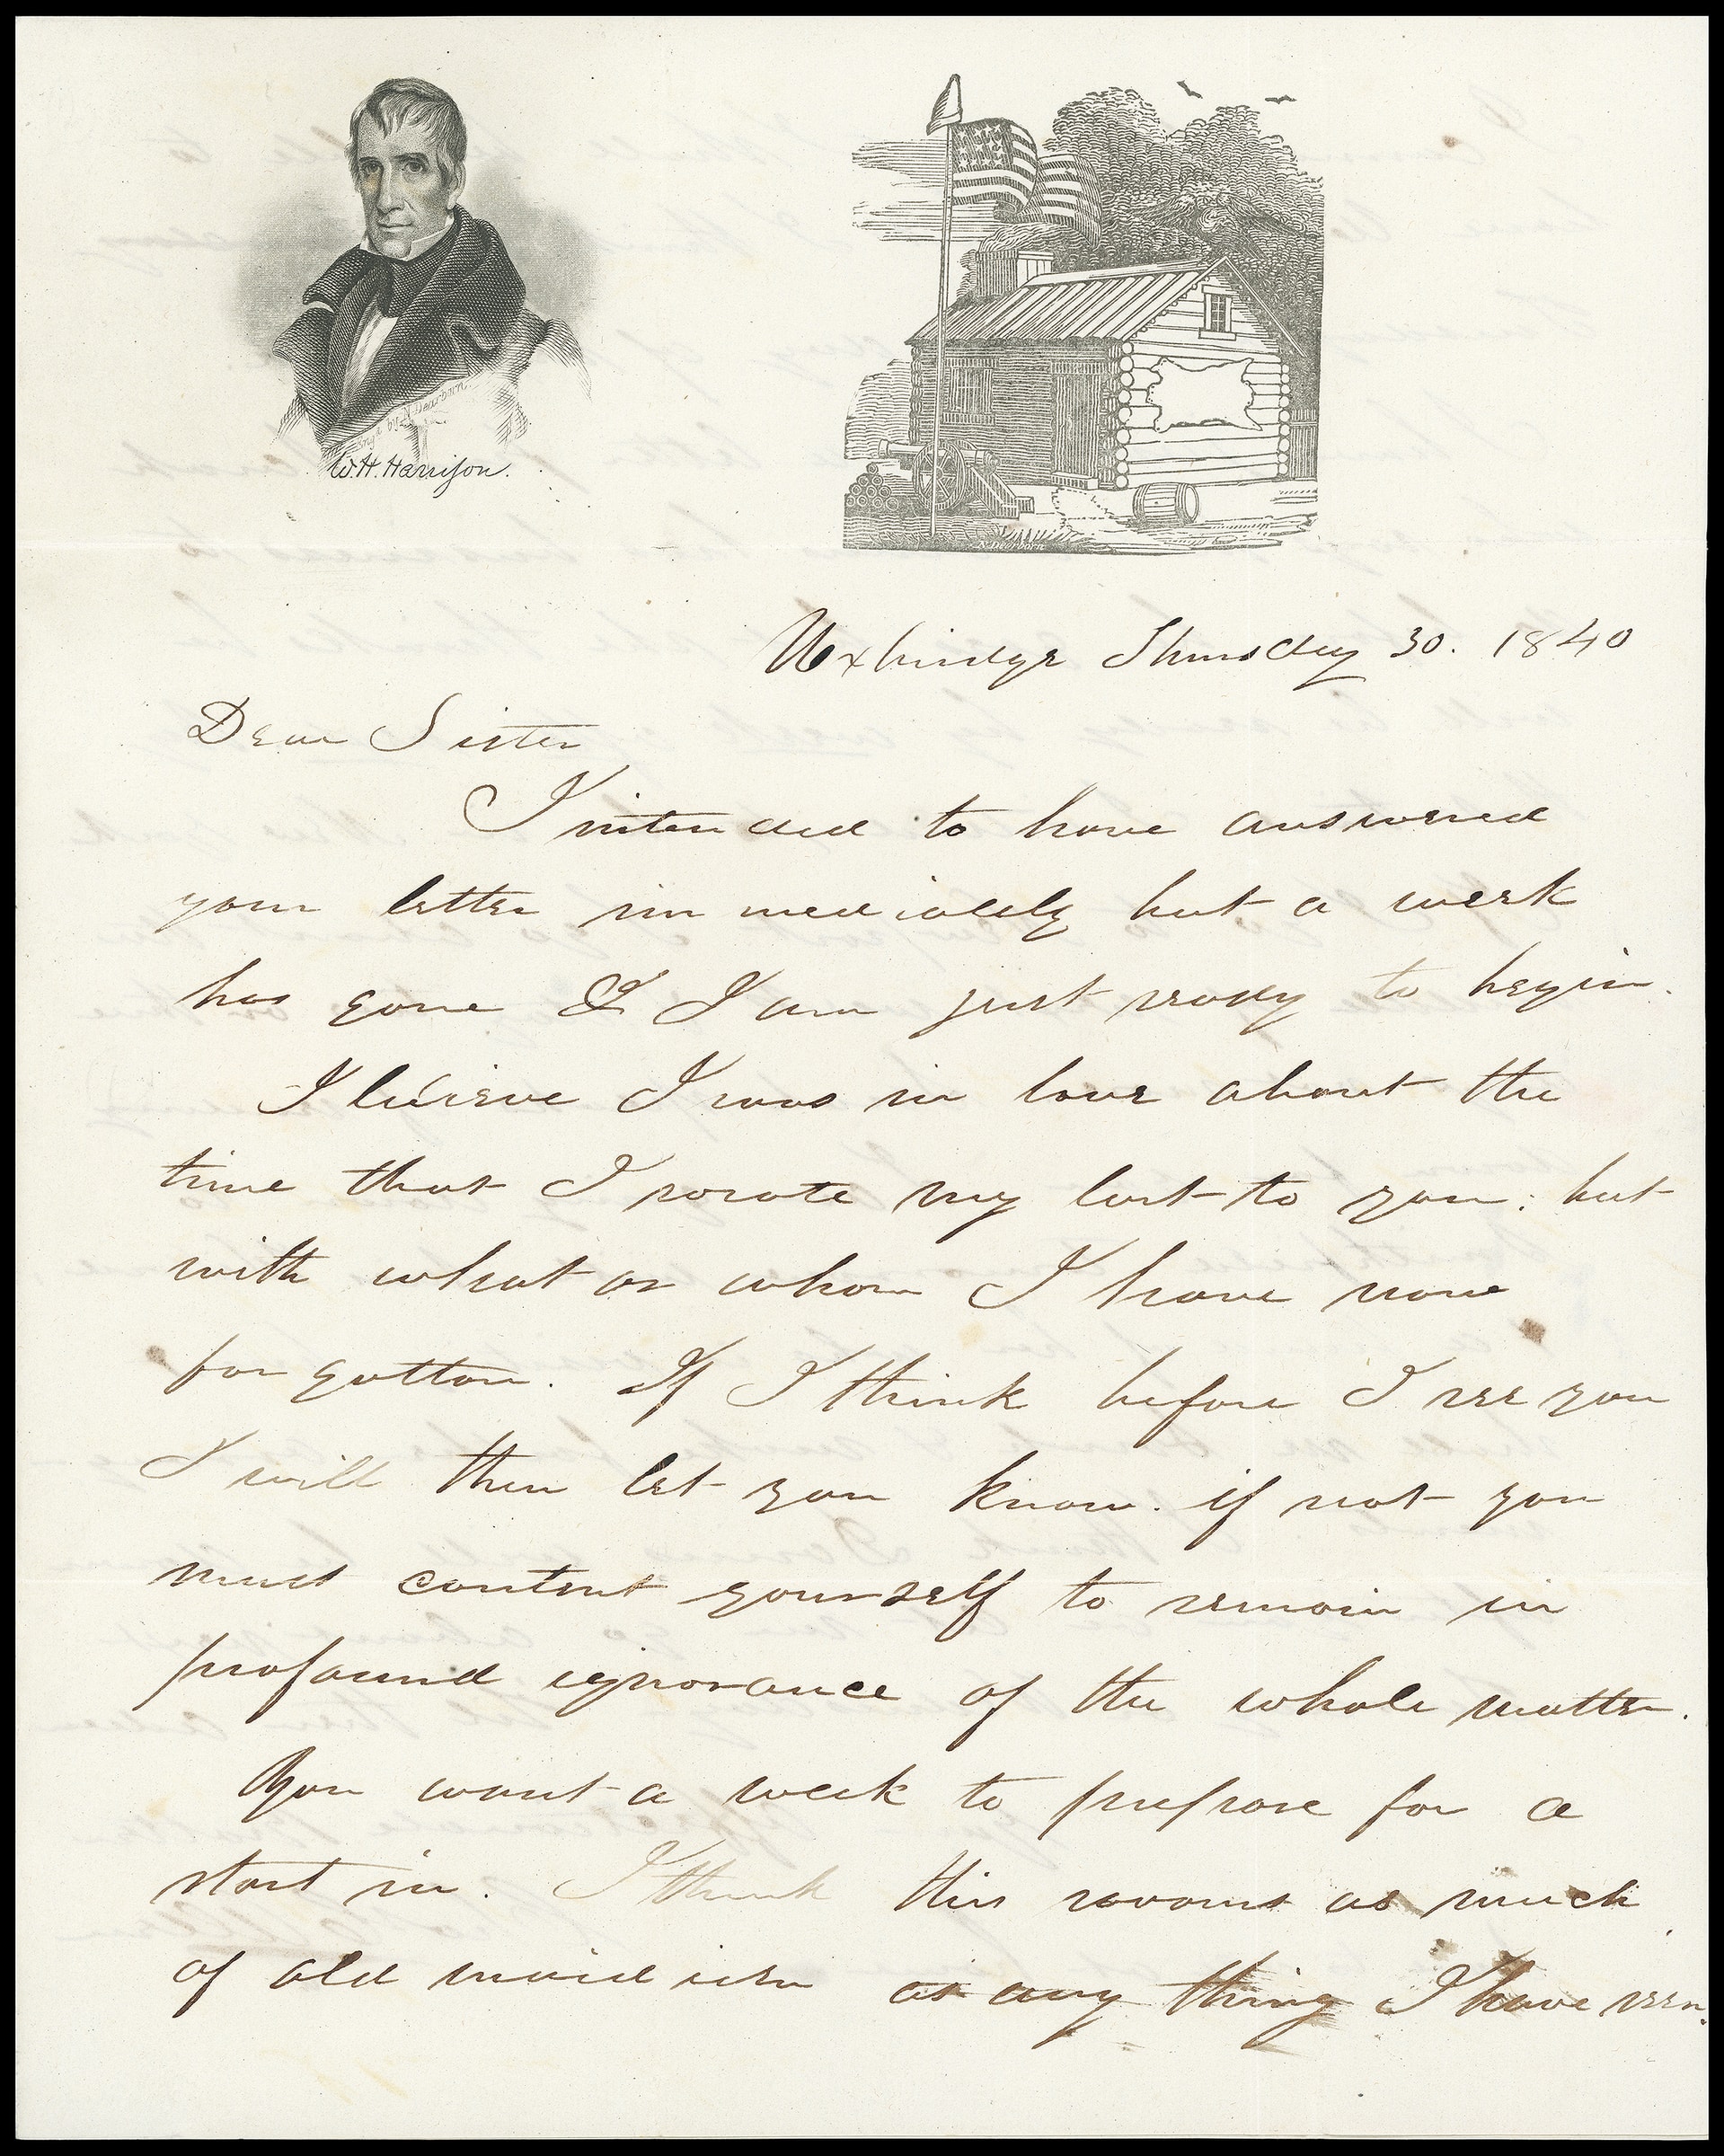 Eng'd by N. Dearborn.
W.H. Harrison.
N. Dearborn
Uxbridge Thursday 30. 1840
Dear Sister
I intended to have answered
your letter immediately but a week
has gone & I am just ready to begin.
I believe I was in love about the
time that I wrote my last to you; but
with what or whom I have now
forgotton. If I think before I see you
I will then let you know. if not you
must content yourself to remain in
profound ignorance of the whole matter.
You want a week to prepare for a
start in. I think this savours as much
of old maidism as any thing I have seen.